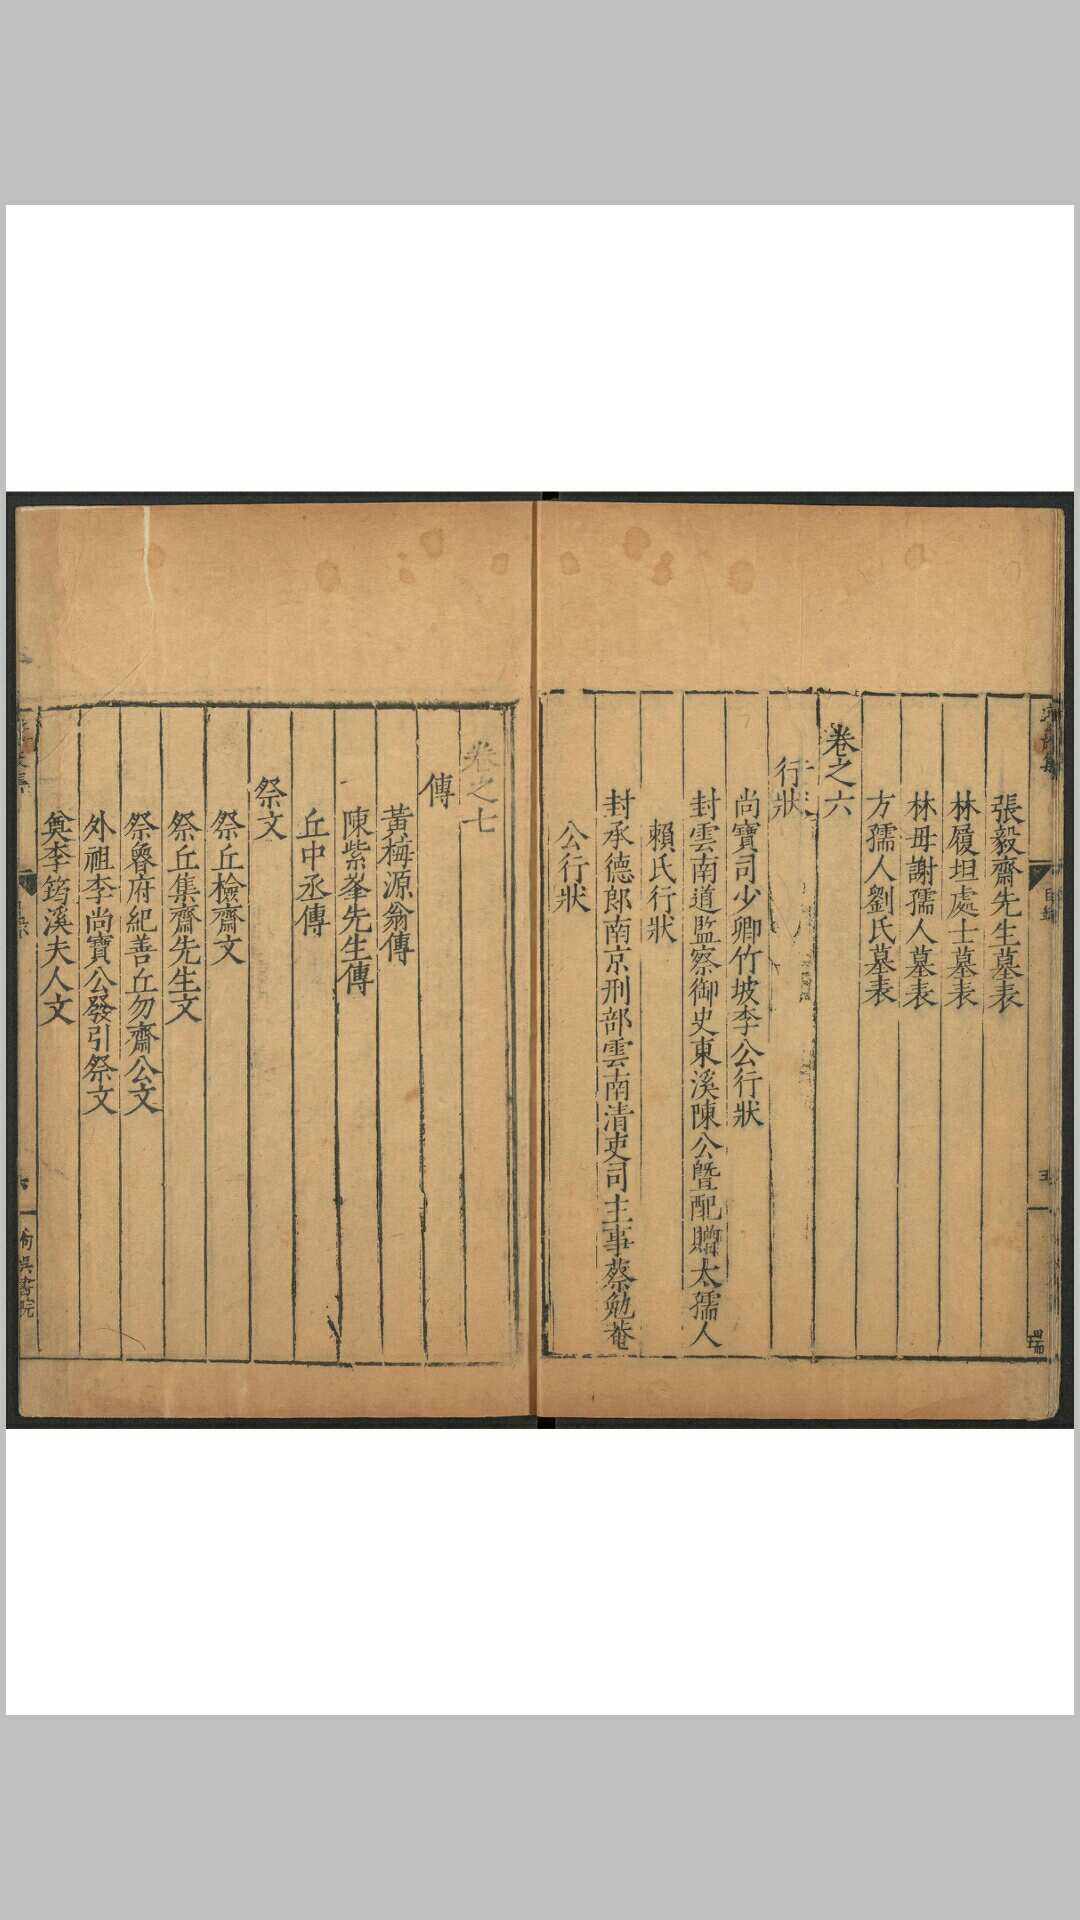 張毅齋先生墓表
林履坦處士墓表
林母謝孺人墓表
方孺人劉氏墓表
卷之六
行狀
尚寶司少卿竹坡李公行狀
封雲南道監察御史東溪陳公暨配贈太孺人
賴氏行狀
封承德郎南京刑部雲南清吏司主事蔡勉菴
公行狀
卷之七
傳
黃梅源翁傳
陳紫峯先生傳
丘中丞傳
祭文
祭丘檢齋文
祭丘集齋先生文
祭魯府紀善丘勿齋公文
外祖李尚寶公發引祭文
奠李筠溪夫人文